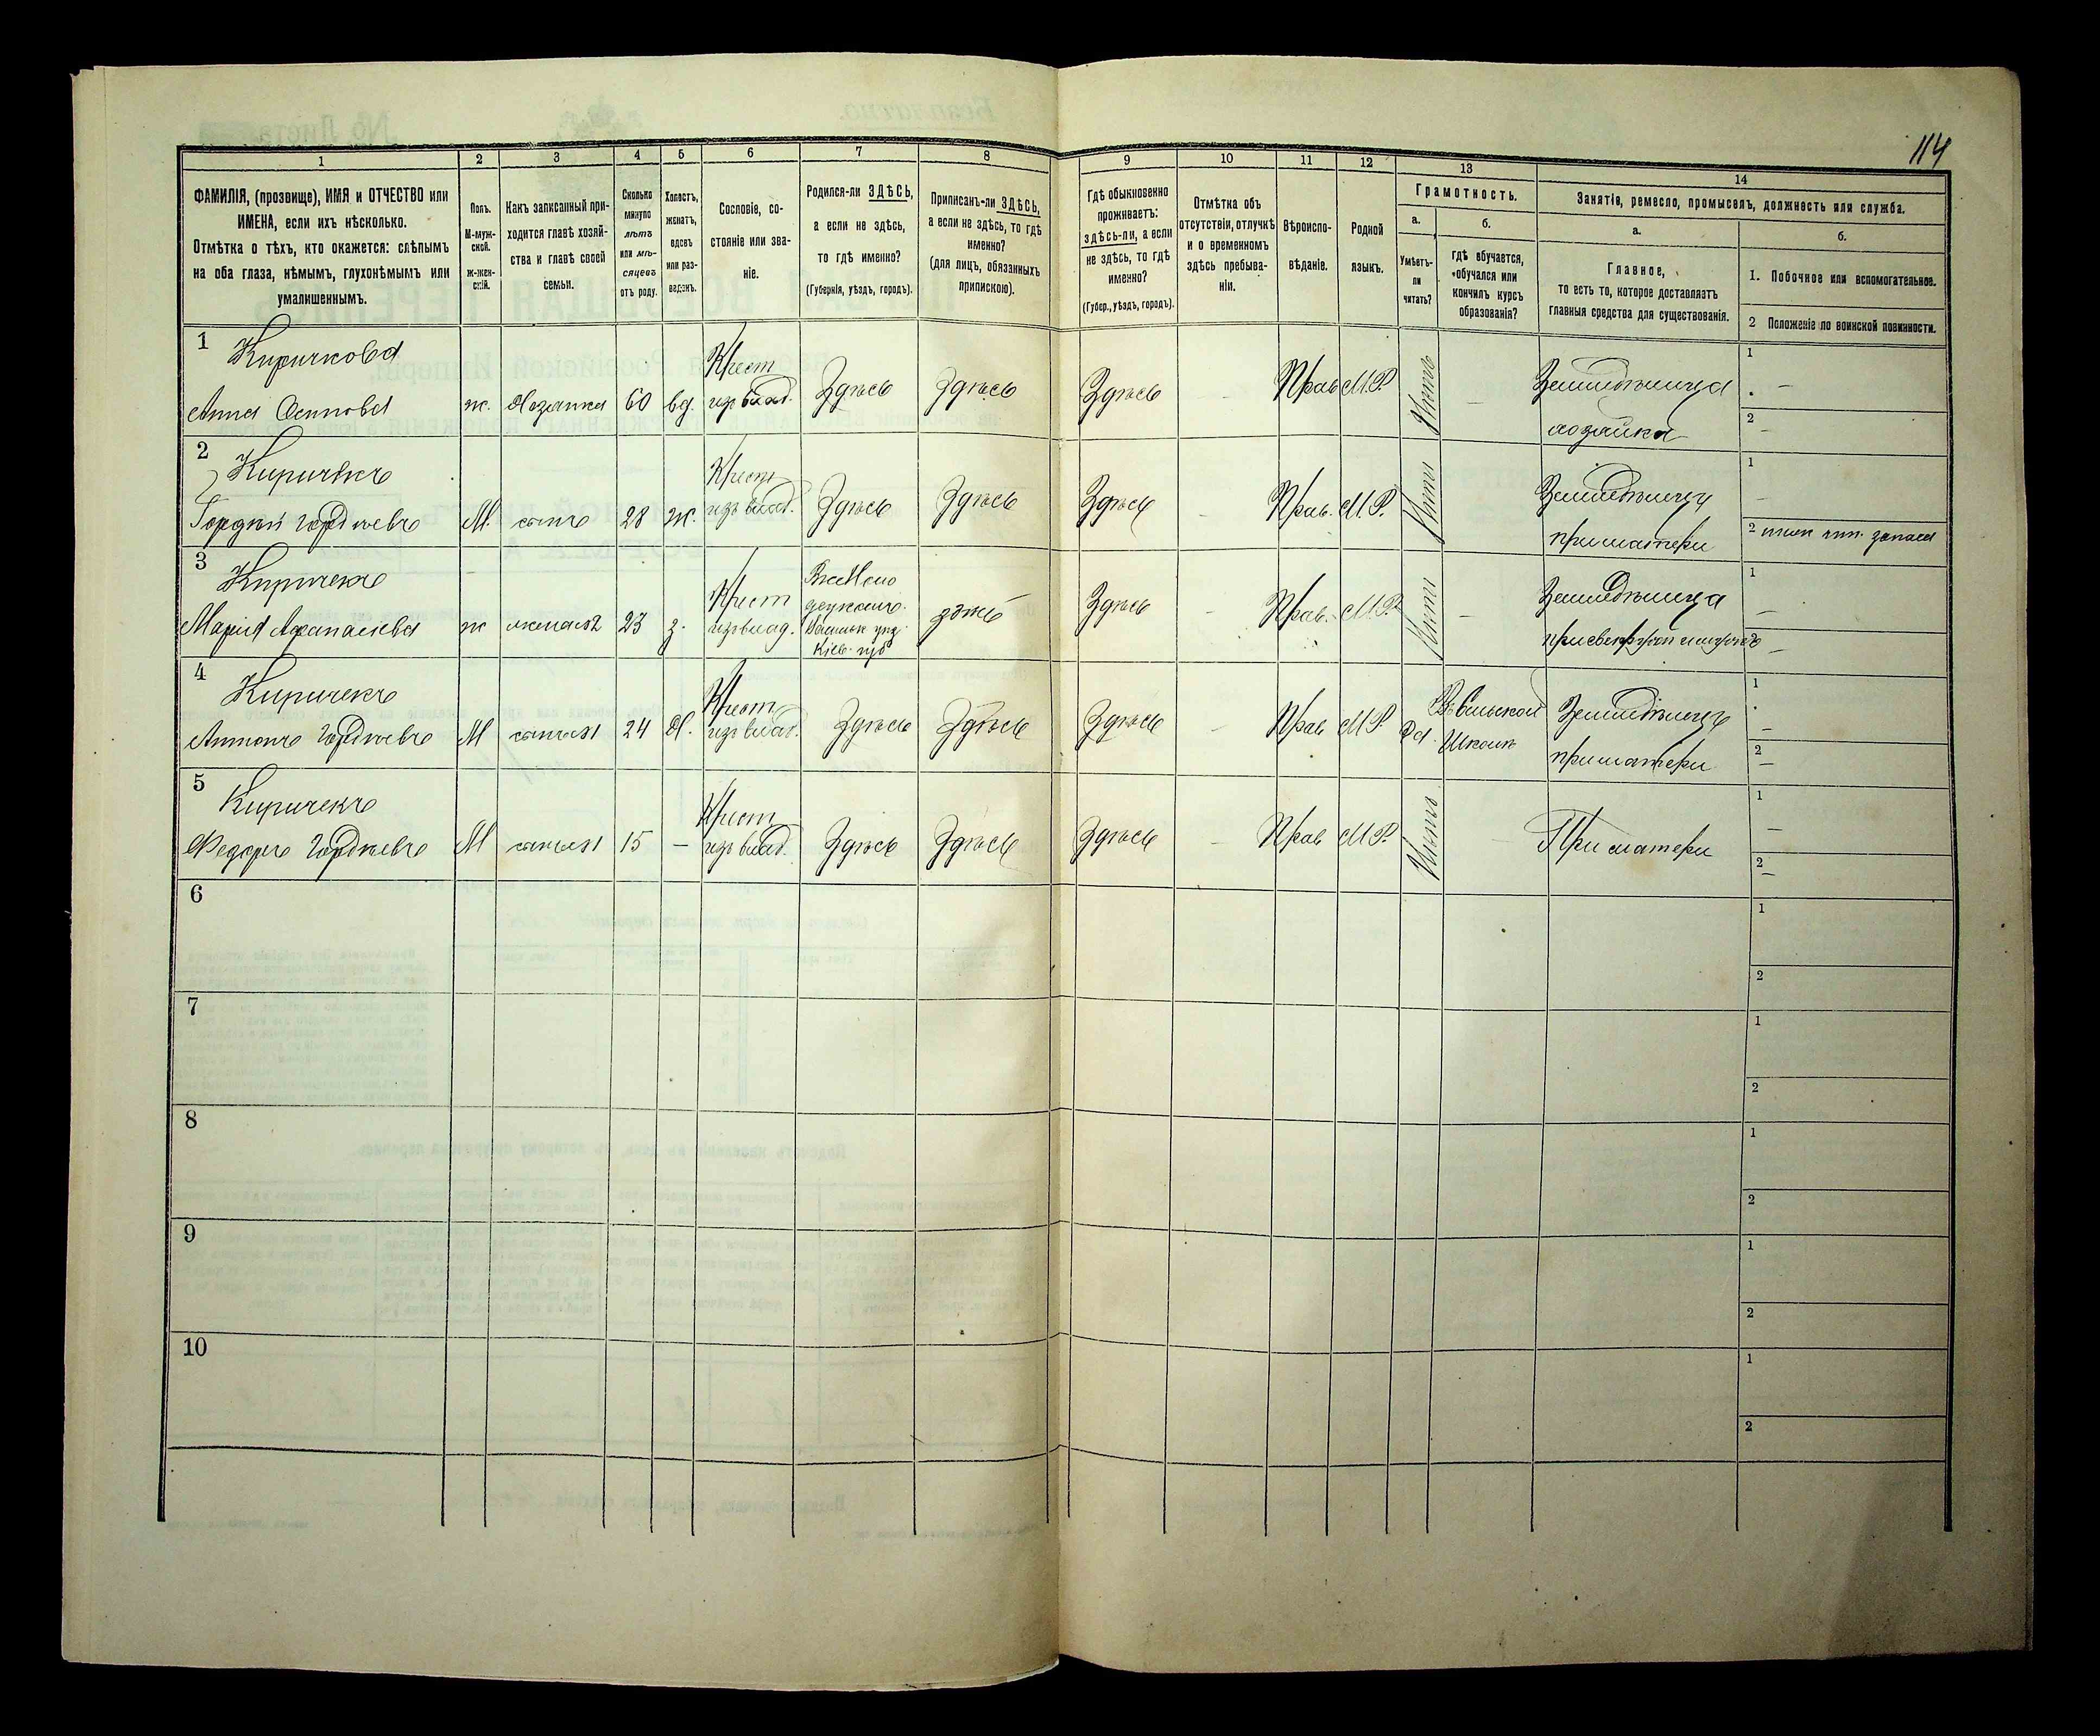 114
1 2 3 4 5 6 7 8 9 10 11 12 13 14
ФАМИЛІЯ, (прозвище), ИМЯ и ОТЧЕСТВО или
ИМЕНА, если ихъ нѣсколько.
Отмѣтка о тѣхъ, кто окажется: слѣпымъ
на оба глаза, нѣмымъ, глухонѣмымъ или
умалишеннымъ.
Полъ.
М-муж-
ской.
Ж-жен-
скій.
Какъ записанный при-
ходится главѣ хозяй-
ства и главѣ своей
семьи.
Сколько
минуло
лѣтъ
или мѣ-
сяцевъ
отъ роду.
Холостъ,
женатъ,
вдовъ
или раз-
веденъ.
Сословіе, со-
стояніе или зва-
ніе.
Родился-ли ЗДѢСЬ,
а если не здѣсь,
то гдѣ именно?
(Губернія, уѣздъ, городъ).
Приписанъ-ли ЗДѢСЬ,
а если не здѣсь, то гдѣ
именно?
(для лицъ, обязанныхъ
припискою).
Гдѣ обыкновенно
проживаетъ:
здѣсь-ли, а если
не здѣсь, то гдѣ
именно?
(Губер., уѣздъ, городъ).
Отмѣтка объ
отсутствіи, отлучкѣ
и о временномъ
здѣсь пребыва-
ніи.
Вѣроиспо-
вѣданіе.
Родной
языкъ.
Грамотность.
а.
Умѣетъ-
ли
читать?
б.
гдѣ обучается,
обучался или
кончилъ курсъ
образованія?
Занятіе, ремесло, промыселъ, должность или служба.
а.
Главное,
то есть то, которое доставляетъ
главныя средства для существованія.
б.
1. Побочное или вспомогательное.
2 Положеніе по воинской повинности.
1 Киричкова Крест Земледѣлица 1 —
Анна Осипова ж. Хозяйка 60 вд. изъ влад. Здѣсь Здѣсь Здѣсь — Прав М.Р. Нѣтъ — хозяйка 2 —
2 Киричекъ Крест Земледѣлецъ 1 —
Гордій Гордѣевъ М. сынъ 28 ж. изъ влад. Здѣсь Здѣсь Здѣсь — Прав. М.Р. Нѣтъ при матери 2 запаса
3 Киричекъ Крест Земледѣлица 1 —
Марія Афанасіева ж жена 2 23 з. изъ влад. Васильк уѣз. Кіев. губ здѣсь Здѣсь — Прав. М.Р. Нѣтъ — —
4 Киричекъ Крест Въ сельской Земледѣлецъ 1 —
Антонъ Гордѣевъ М сынъ 1 24 Х. изъ влад. Здѣсь Здѣсь Здѣсь — Прав М.Р. Да Школѣ при матери 2 —
5 Киричекъ Крест 1 —
Федоръ Гордѣевъ М сынъ 1 15 — изъ влад. Здѣсь Здѣсь Здѣсь — Прав М.Р. Нѣтъ — При матери 2 —
6 1
2
7 1
2
8 1
2
9 1
2
10 1
2